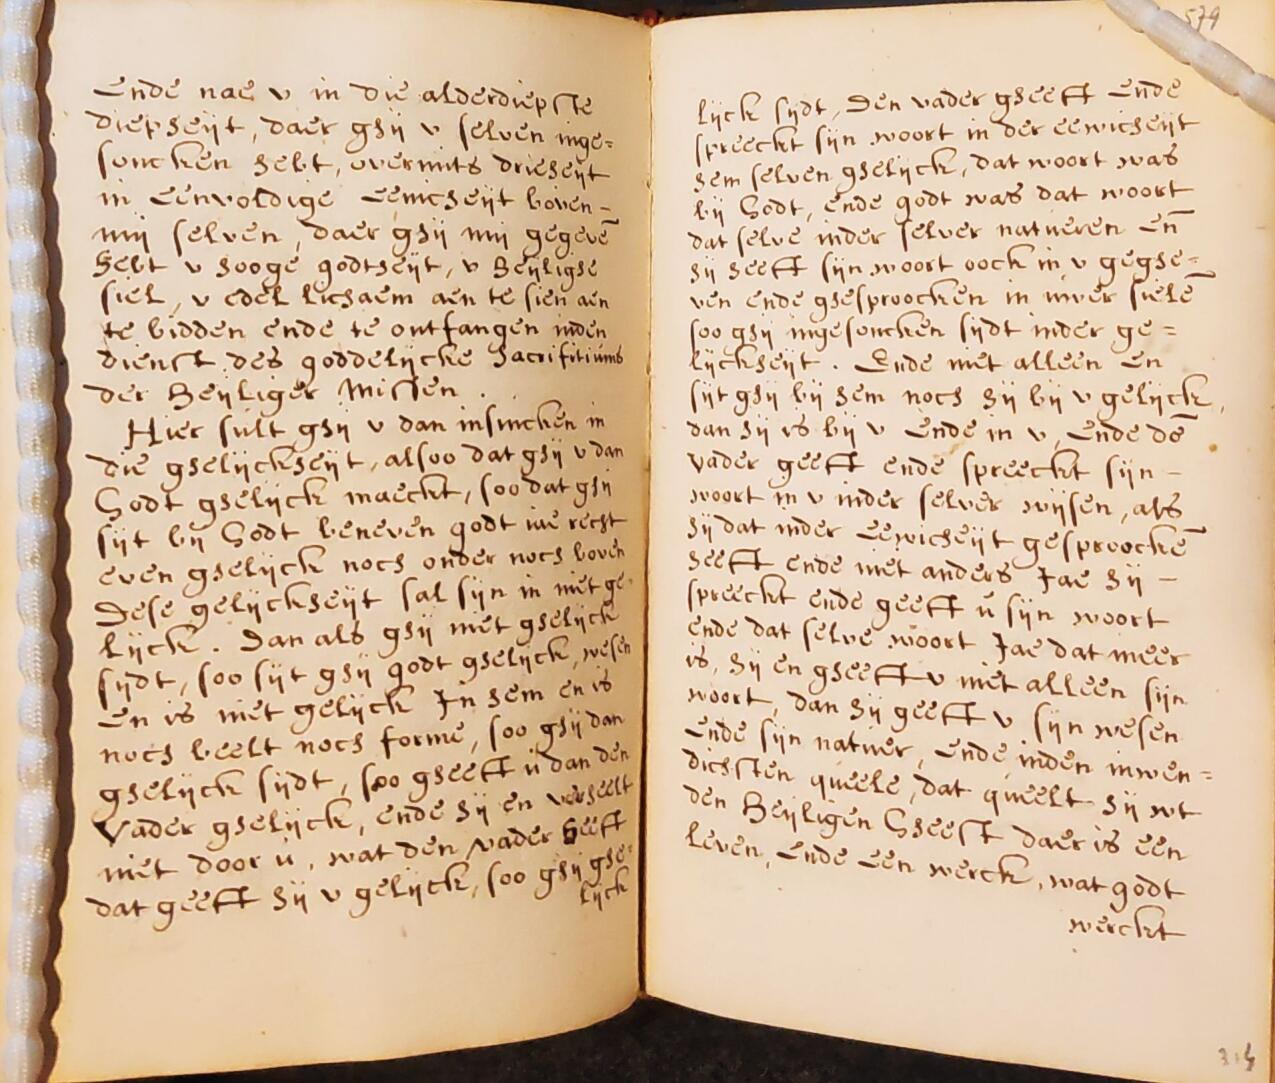 Ende nae v in die alderdiepste
diepheijt, daer ghij v selven inge=
soncken hebt, overmits drieheijt
in eenvoldige eenicheijt boven-
mij selven, daer ghij mij gegevē
hebt v hooge godtheijt, v heijlighe
siel, v edel lichaem aen te sien aen
te bidden ende te ontfangen inden
dienst des goddelijcke Sacrifitiums
der heijliger Missen.
Hier sult ghij v dan insincken in
die ghelijckheijt, alsoo dat ghij v dan
Godt ghelijck maeckt, soo dat ghij
sijt bij Godt beneven godt iae recht
even ghelijck noch onder noch boven
Dese gelijckheijt sal sijn in niet ge-
lijck. Dan als ghij niet ghelijck
sijdt, soo sijt ghij godt ghelijck, wesen
en is niet gelijck In hem en is
noch beelt noch forme, soo ghij dan
ghelijck sijdt, soo gheeft ú dan den
Vader ghelijck, ende hij en verheelt
niet door ú, wat den vader heeft
dat geeft hij v gelijck, soo ghij ghe-
lijck
579
lijck sijdt, Den vader gheeft ende
spreeckt sijn woort in der eewicheijt
hem selven ghelijck, dat woort was
bij Godt, ende godt was dat woort
dat selve inder selver natueren en̄
hij heeft sijn woort oock in v geghe=
ven ende ghesproocken in uwer sielē
soo ghij ingesoncken sijdt inder ge=
lijckheijt. Ende niet alleen en
sijt ghij bij hem noch hij bij v gelijck,
dan hij is bij v ende in v, ende dē
vader geeft ende spreeckt sijn -
woort in v inder selver wijsen, als
hij dat inder eewicheijt gesproockē
heeft ende niet anders Jae hij -
spreeckt ende geeft ú sijn woort
ende dat selve woort Jae dat meer
is, hij en gheeft v niet alleen sijn
woort, dan hij geeft v sijn wesen
ende sijn natuer, ende inden inwen=
dichsten queele, dat queelt hij wt
den heijligen Gheest daer is een
leven, ende een werck, wat godt
werckt